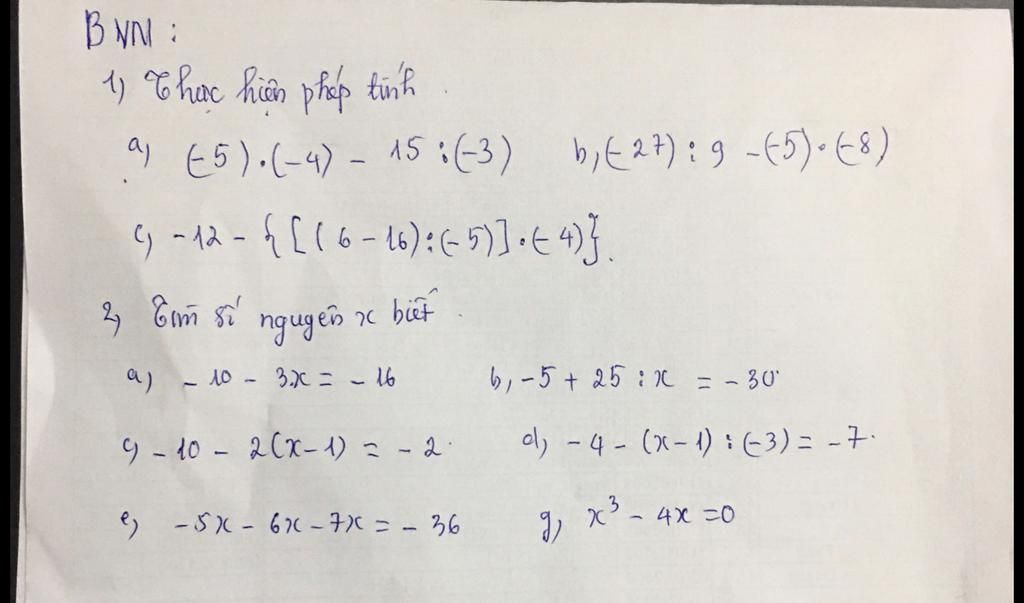 BVN :
1) Thực hiện phép tính.
a) (-5).(-4) - 15 : (-3) b, (-27) : 9 - (-5).(-8)
c) -12 - {[(6 - 16) : (-5)].(-4)}.
2) Tìm số nguyên x biết.
a) -10 - 3x = -16 b, -5 + 25 : x = -30
c) -10 - 2(x-1) = -2. d) -4 - (x-1) : (-3) = -7.
e) -5x - 6x - 7x = -36 g) x³ - 4x = 0